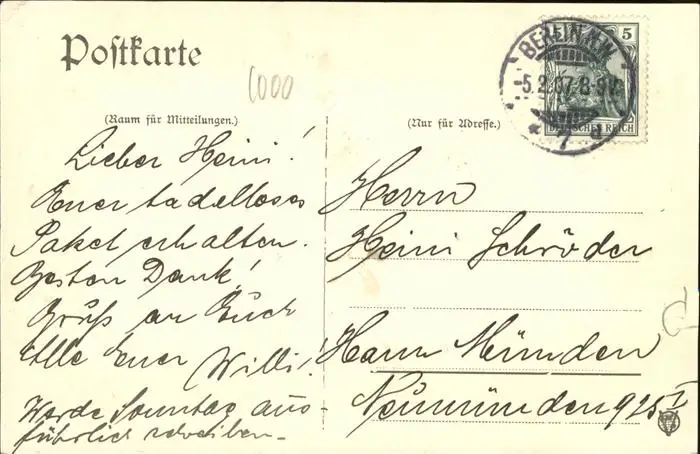 Postkarte
1000
(Raum für Mitteilungen.)
Lieber Heini!
Euer tadelloses
Paket erhalten.
Besten Dank!
Gruß an Euch
Alle Euer Willi!
Werde Sonntag aus-
führlich schreiben.
(Nur für Adresse.)
Herrn
Heini Schröder
Hann Münden
Neumünden 925 I
BERLIN N.W.
5.2.07.8-9V.
* 7 d
5
DEUTSCHES REICH